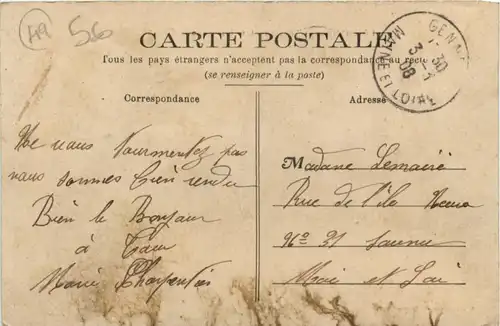 AR 56
CARTE POSTALE
Tous les pays étrangers n'acceptent pas la correspondance au recto
(se renseigner à la poste)
Correspondance
Ne vous tourmentez pas
nous sommes bien rendu
Bien le Bonjour
à
Marie Charpentier
Adresse
GENN
30
3-4
08
MAINE ET LOIRE
Madame Lemaire
Rue de l'île
No 31
et